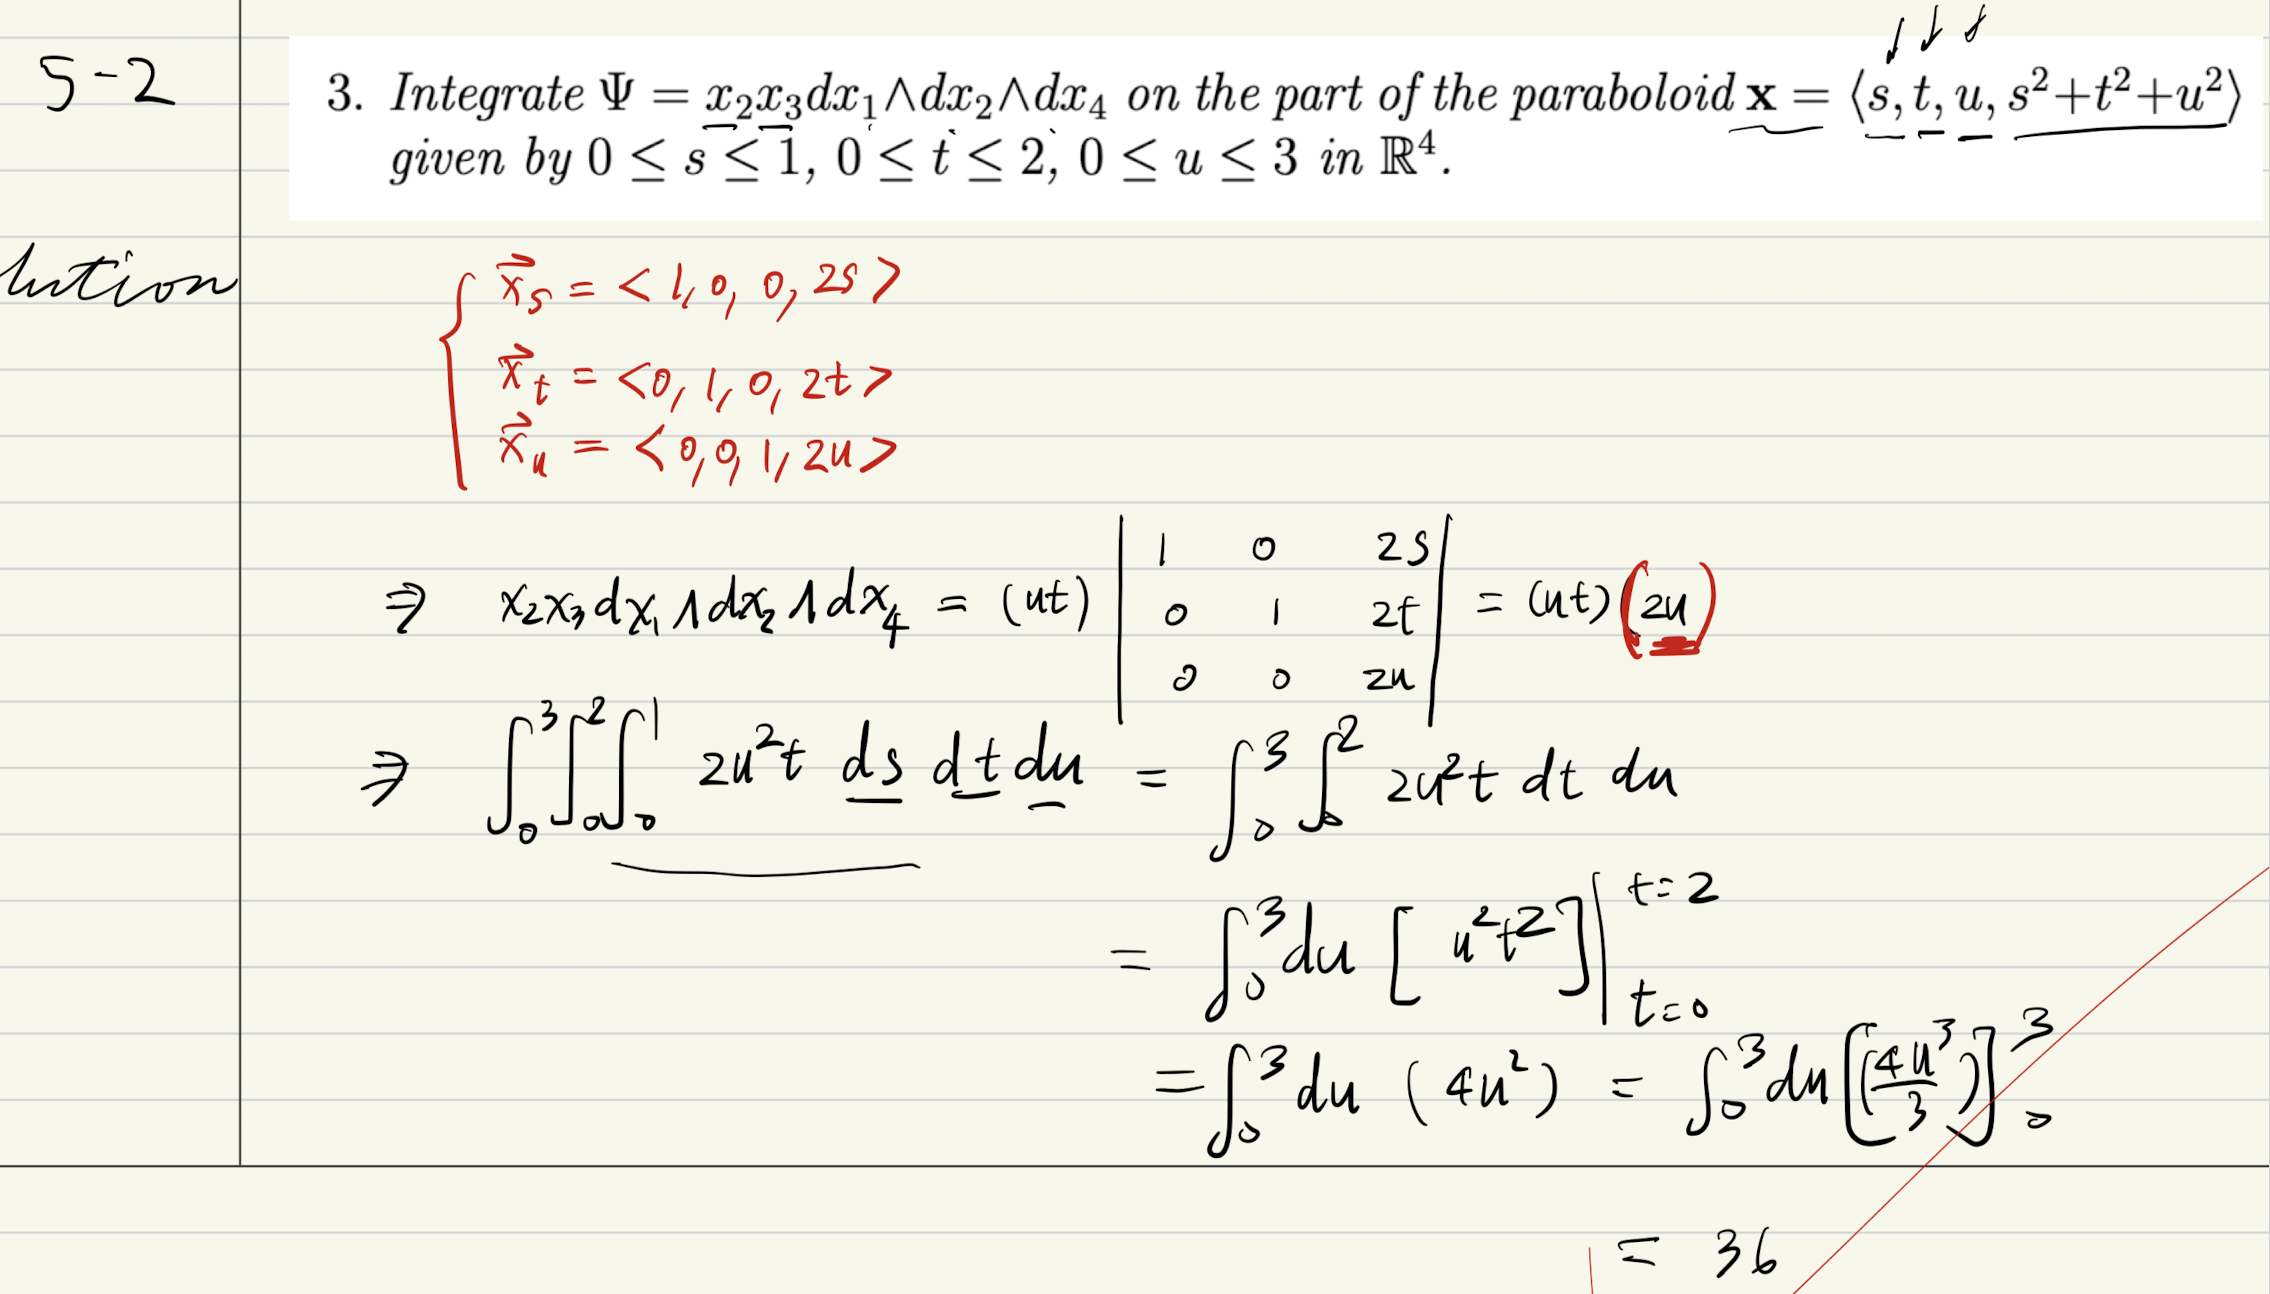 5-2
3. Integrate Ψ = x₂x₃dx₁∧dx₂∧dx₄ on the part of the paraboloid x = ⟨s, t, u, s²+t²+u²⟩
given by 0 ≤ s ≤ 1, 0 ≤ t ≤ 2, 0 ≤ u ≤ 3 in ℝ⁴.
lution
x⃗ₛ = < 1, 0, 0, 2s >
x⃗ₜ = <0, 1, 0, 2t>
x⃗ᵤ = <0, 0, 1, 2u>
⇒ x₂x₃dx₁∧dx₂∧dx₄ = (ut) | 1 0 2s | = (ut)(2u)
0 1 2t
0 0 2u
⇒ ∫₀³∫₀²∫₀¹ 2u²t ds dt du = ∫₀³∫₀² 2u²t dt du
= ∫₀³ du [ u²t² ] | t=2 t=0
= ∫₀³ du ( 4u² ) = ∫₀³ du [(4u³/3)]₀³
= 36